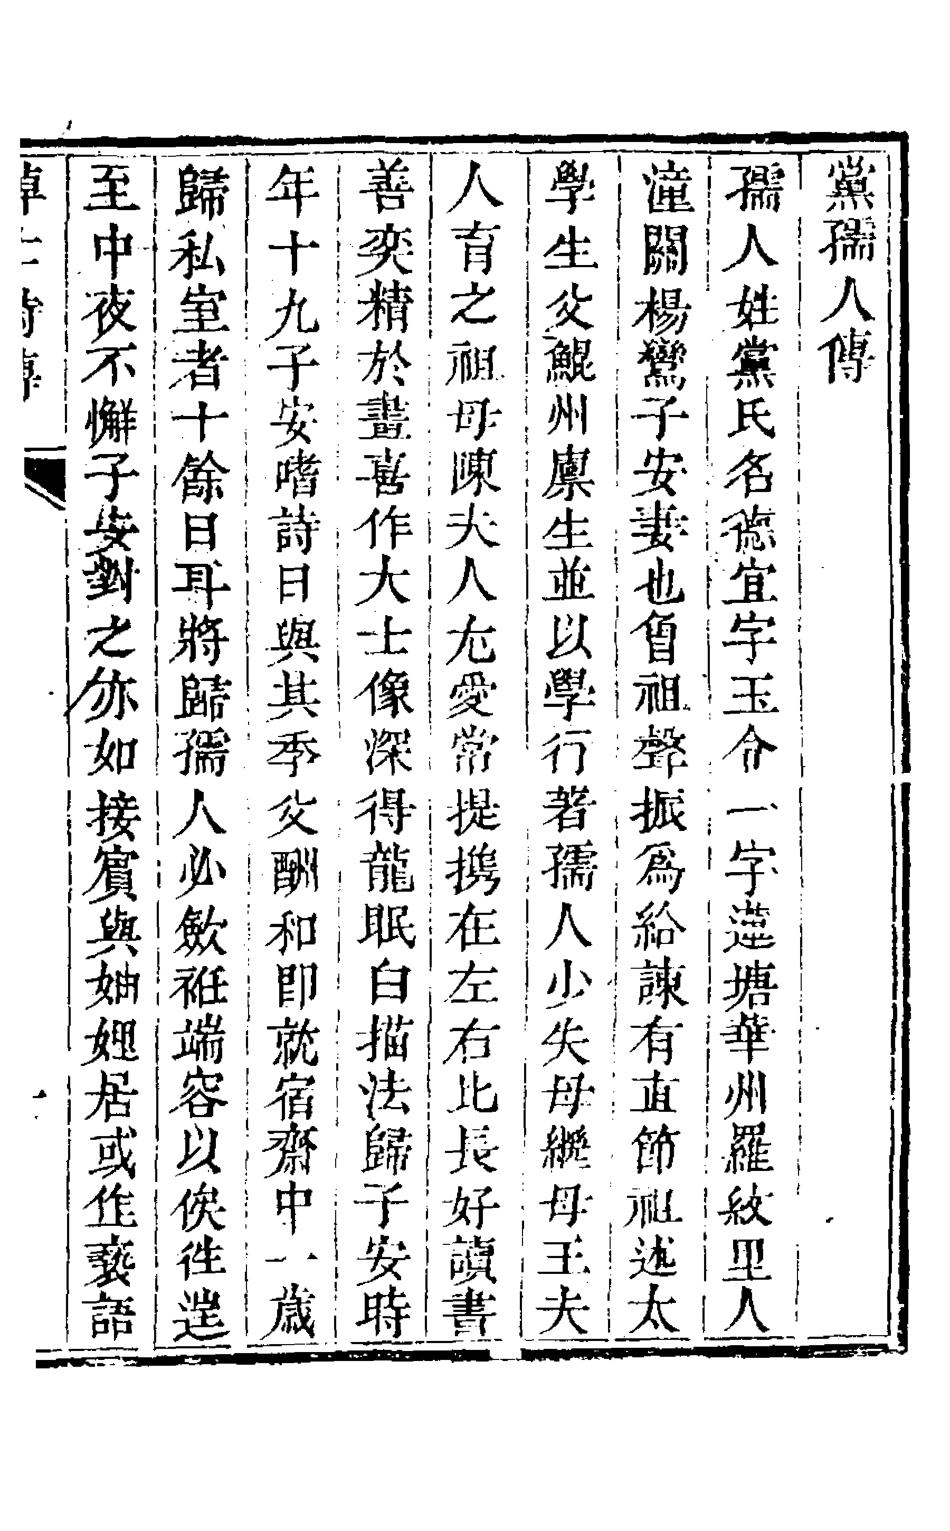 黨孺人傳
孺人姓黨氏名德宜字玉令一字蓮塘華州羅紋里人
潼關楊鸞子安妻也曾祖聲振爲給諫有直節祖述太
學生父鯤州廩生並以學行著孺人少失母繼母王夫
人育之祖母陳夫人尢愛常提携在左右比長好讀書
善奕精於畫喜作大士像深得龍眠白描法歸子安時
年十九子安嗜詩日與其季父酬和即就宿齋中一歲
歸私室者十餘日耳將歸孺人必斂袵端容以俟徃遑
至中夜不懈子安對之亦如接賓與妯娌居或作褻語